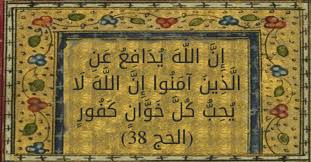 إِنَّ اللَّهَ يُدَافِعُ عَنِ
الَّذِينَ آمَنُوا إِنَّ اللَّهَ لَا
يُحِبُّ كُلَّ خَوَّانٍ كَفُورٍ
(الحج 38)